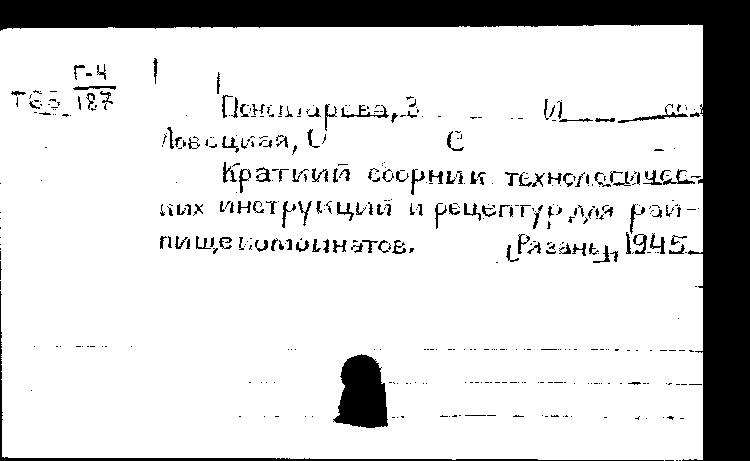 Г-4
187
Пономарева, З И
Ловецкая, О С
Краткий сборник технологичес-
ких инструкций и рецептур для рай-
пищекомбинатов. [Рязань], 1945